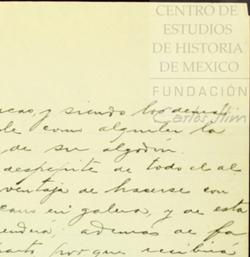 CENTRO DE
ESTUDIOS
DE HISTORIA
DE MEXICO
FUNDACIÓN
Carlos Slim
y siendo los demás
como alquiler la
de su algodon.
despepite de todo el al
ventaja de hacerse con
en galera, y de esta
además de fa
porque recibirá